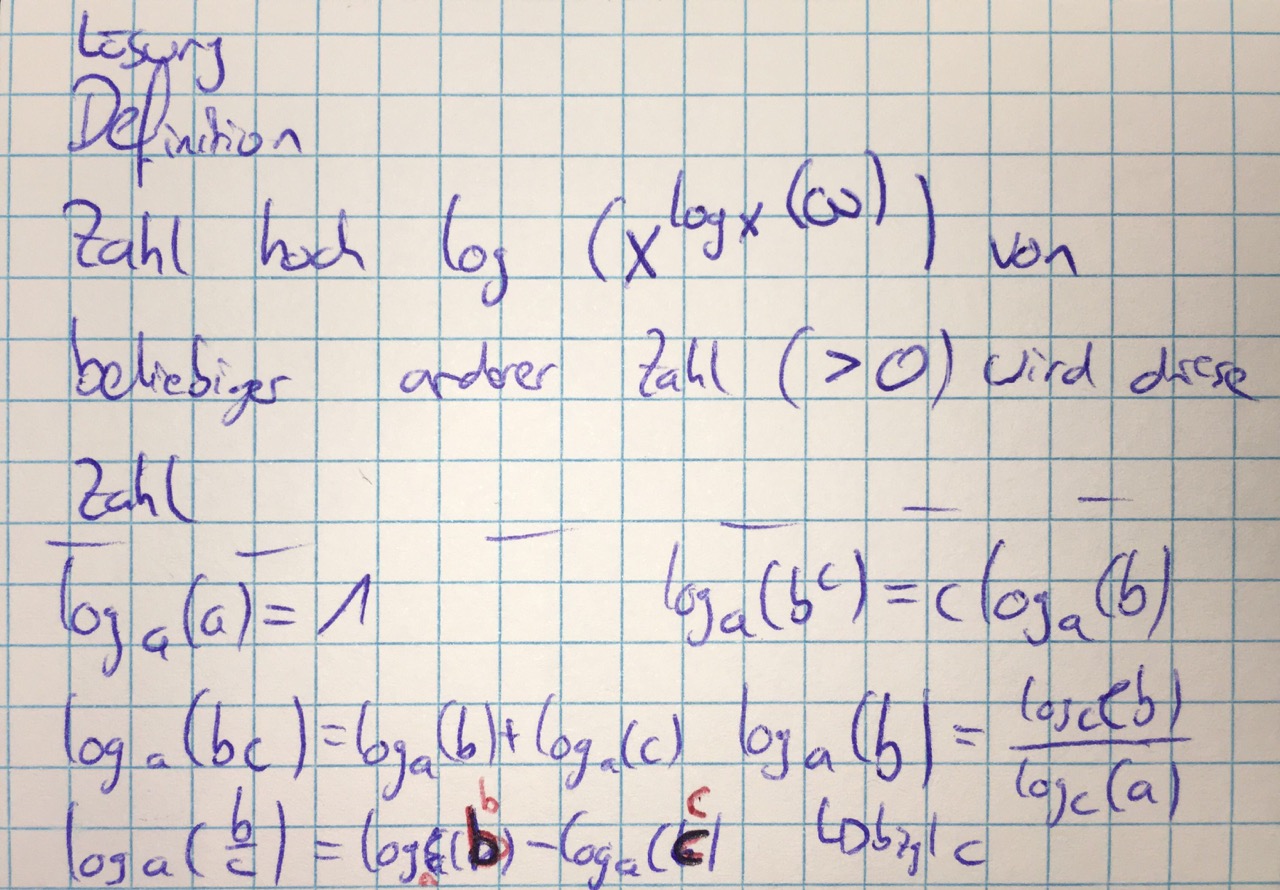 Lösung
Definition
Zahl hoch log (x^{log_x(ω)}) von
beliebiger anderer Zahl (>0) wird diese
Zahl
log_a(a) = 1 log_a(b^c) = c log_a(b)
log_a(bc) = log_a(b) + log_a(c) log_a(b) = \frac{log_c(b)}{log_c(a)}
log_a(\frac{b}{c}) = log_a(b) - log_a(c) ↳ bzgl c
b c